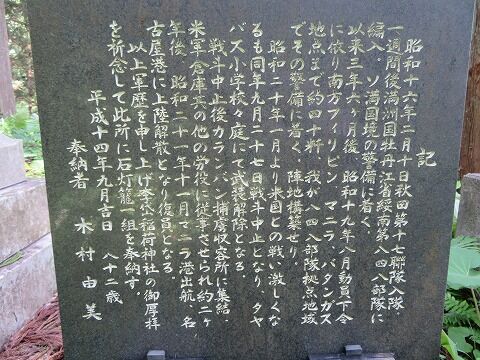 記
昭和十六年二月十日秋田第十七聯隊入隊
一週間後満洲国牡丹江省綏南第八四八部隊に
編入、ソ満国境の警備に着く、
以来三年六ヶ月後、昭和十九年八月動員下令
に依り南方フィリピン、マニラ、バタンガス
地点まで約四十粁、我が八四八部隊拠点地域
でその警備に着く、陣地構築せり。
昭和二十年一月より米国との戦い激しくな
るも同年九月二十七日戦斗中止となり、タヤ
バス小学校々庭にて武装解除となる。
戦斗中止後カランバン捕虜収容所に集結、
米軍倉庫其の他の労役に従事させられ約二ヶ
年後、昭和二十一年十一月マニラ港出航、名
古屋港に上陸解散となり復員となる
以上軍歴を申し上げ李岱稲荷神社の御厚拝
を祈念して此所に石灯籠一組を奉納す。
平成十四年九月吉日 八十二歳
奉納者 木村由美